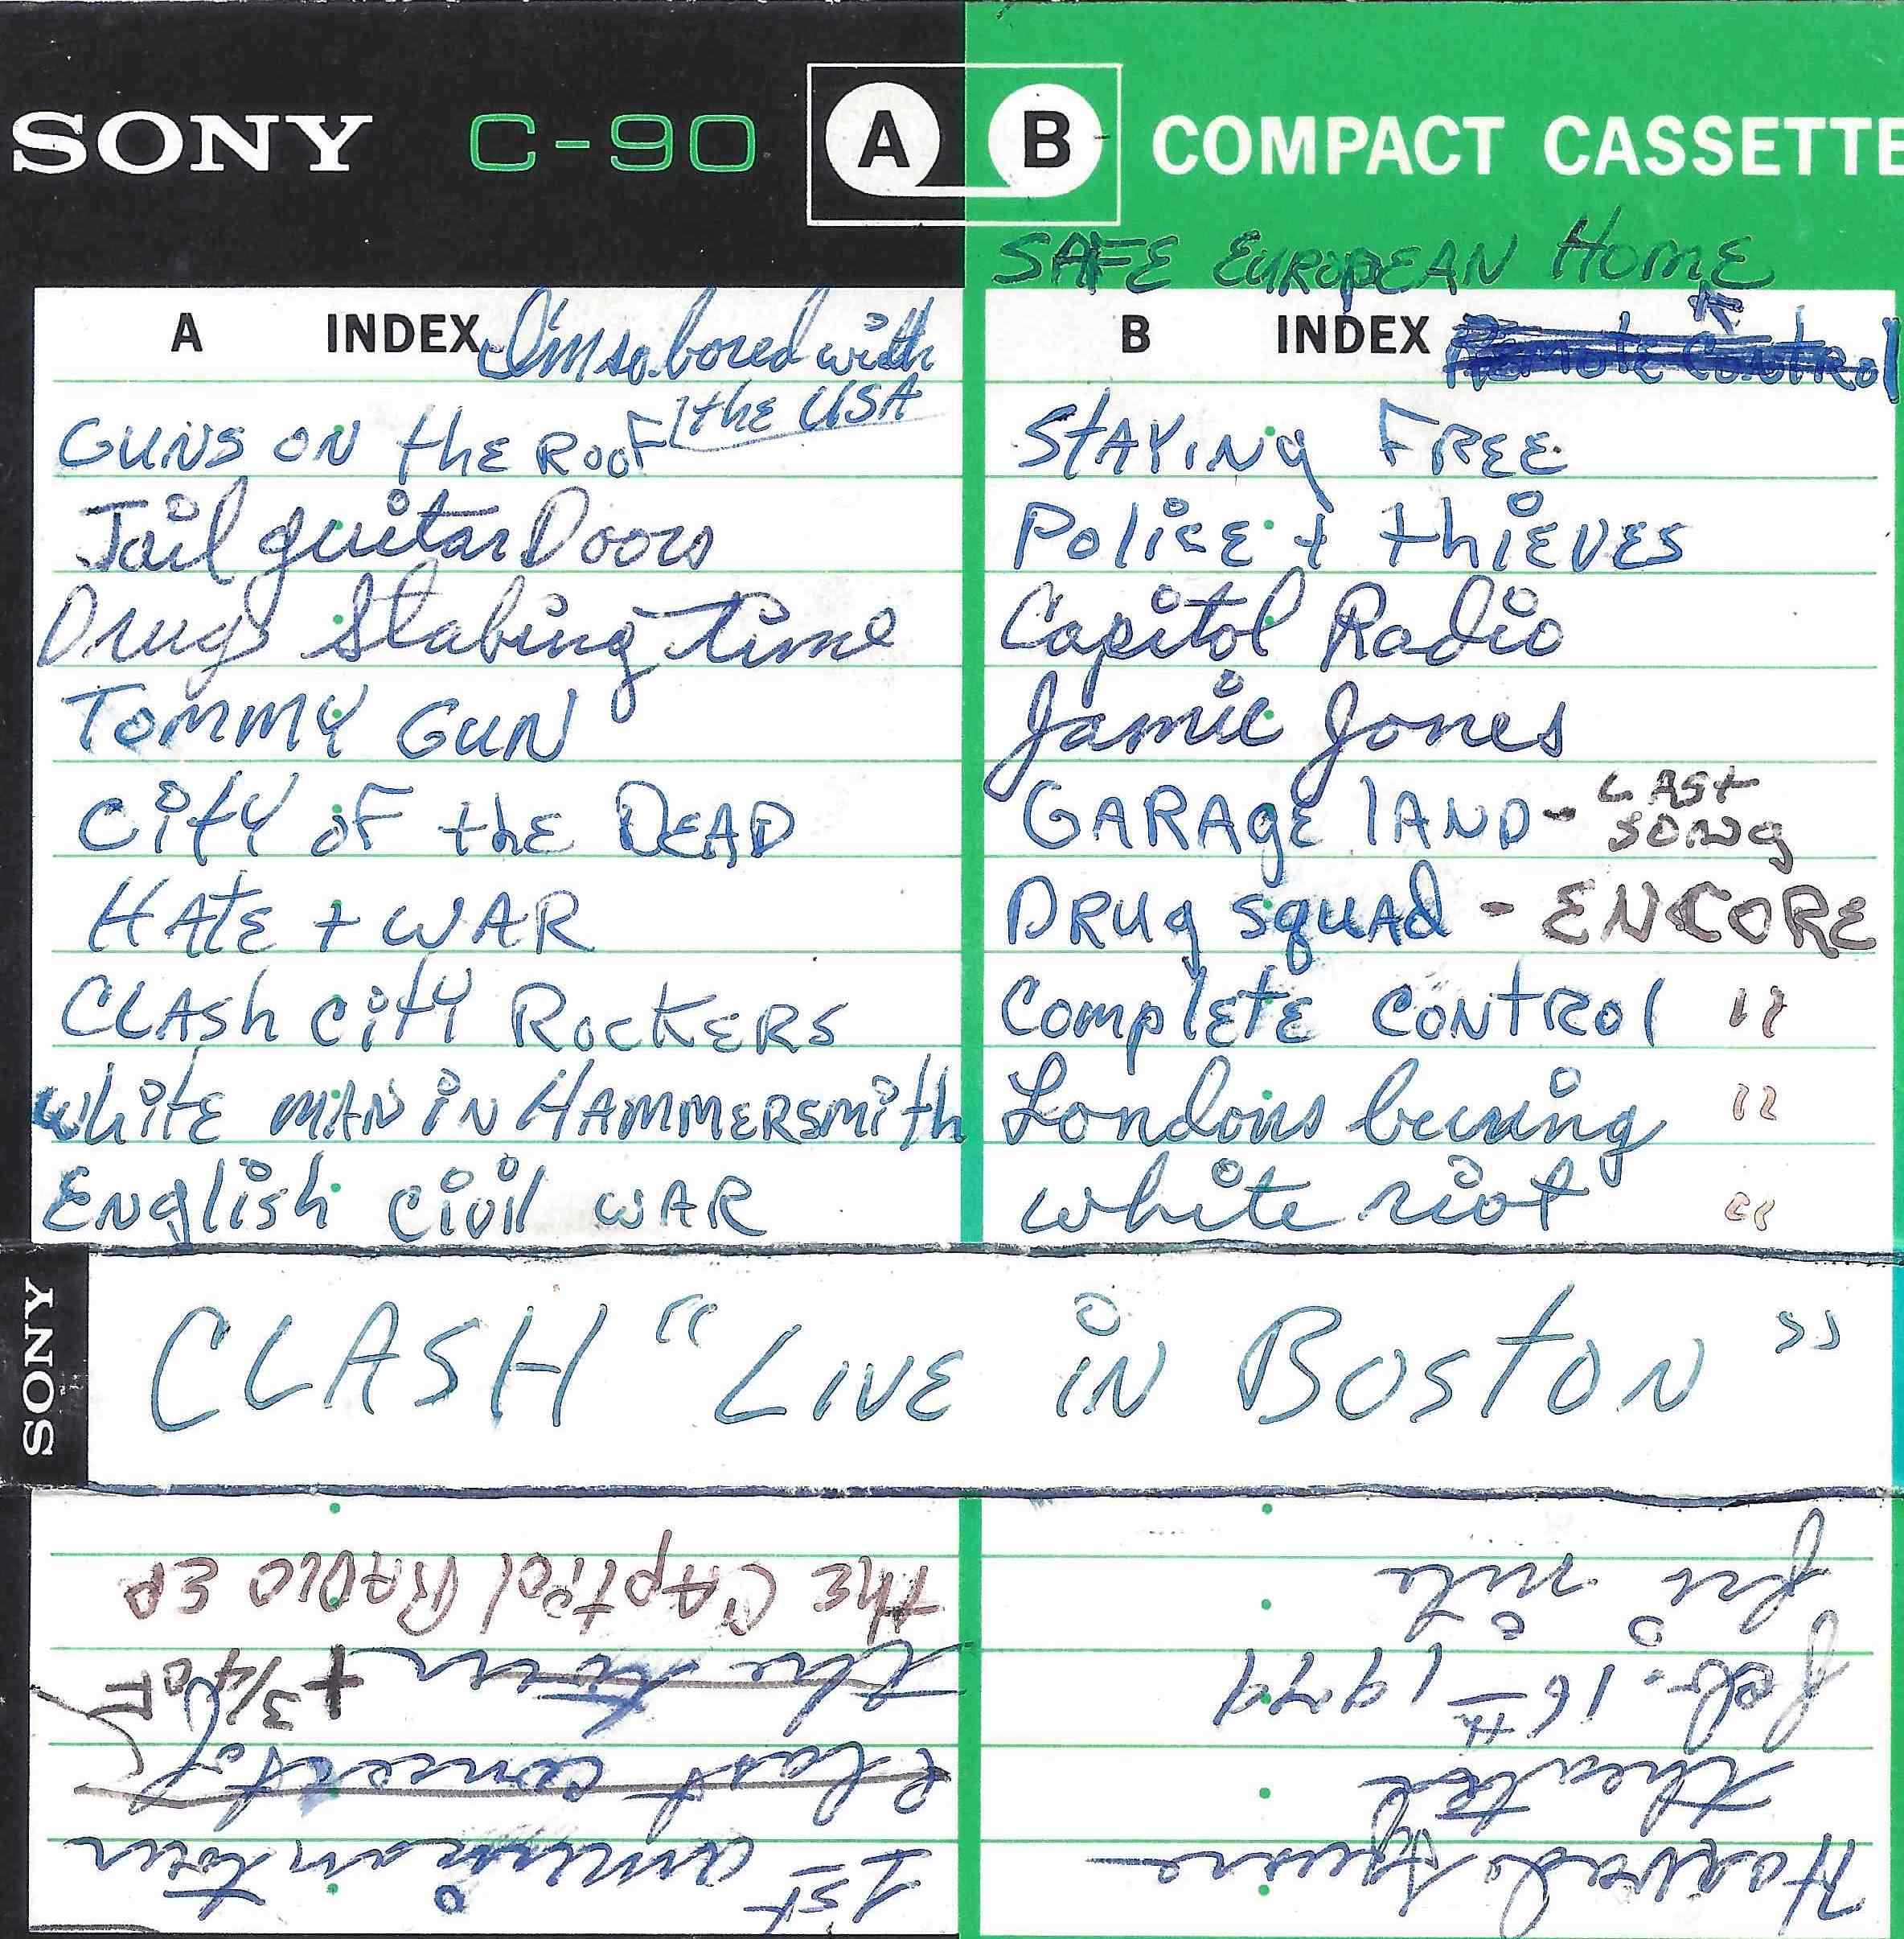 SONY C-90 A B COMPACT CASSETTE
SAFE EUROPEAN HOME
A INDEX I'm so bored with
the USA
GUNS ON the ROOF
Jail guitar Doors
Drugs Stabing time
TOMMY GUN
City oF the DEAD
HAtE + WAR
CLASh City ROCKERS
white MAN iN HAMMERSMith
ENglish Civil WAR
B INDEX Remote Control
StAYiNg FREE
Police + thiEVES
Capitol Radio
Jamie Jones
GARAgE lAND - LASt
SONg
DRUg squAd - ENCORE
ComplEtE CONtRol "
Londons burning "
white riot "
SONY
CLASH "LIVE iN BOStON"
1st american tour
& last concert of
the tour + 3/4 oF
thE CAptiol RADIO EP
Harvard Square
theatre
Feb. 16th 1979
fri nite